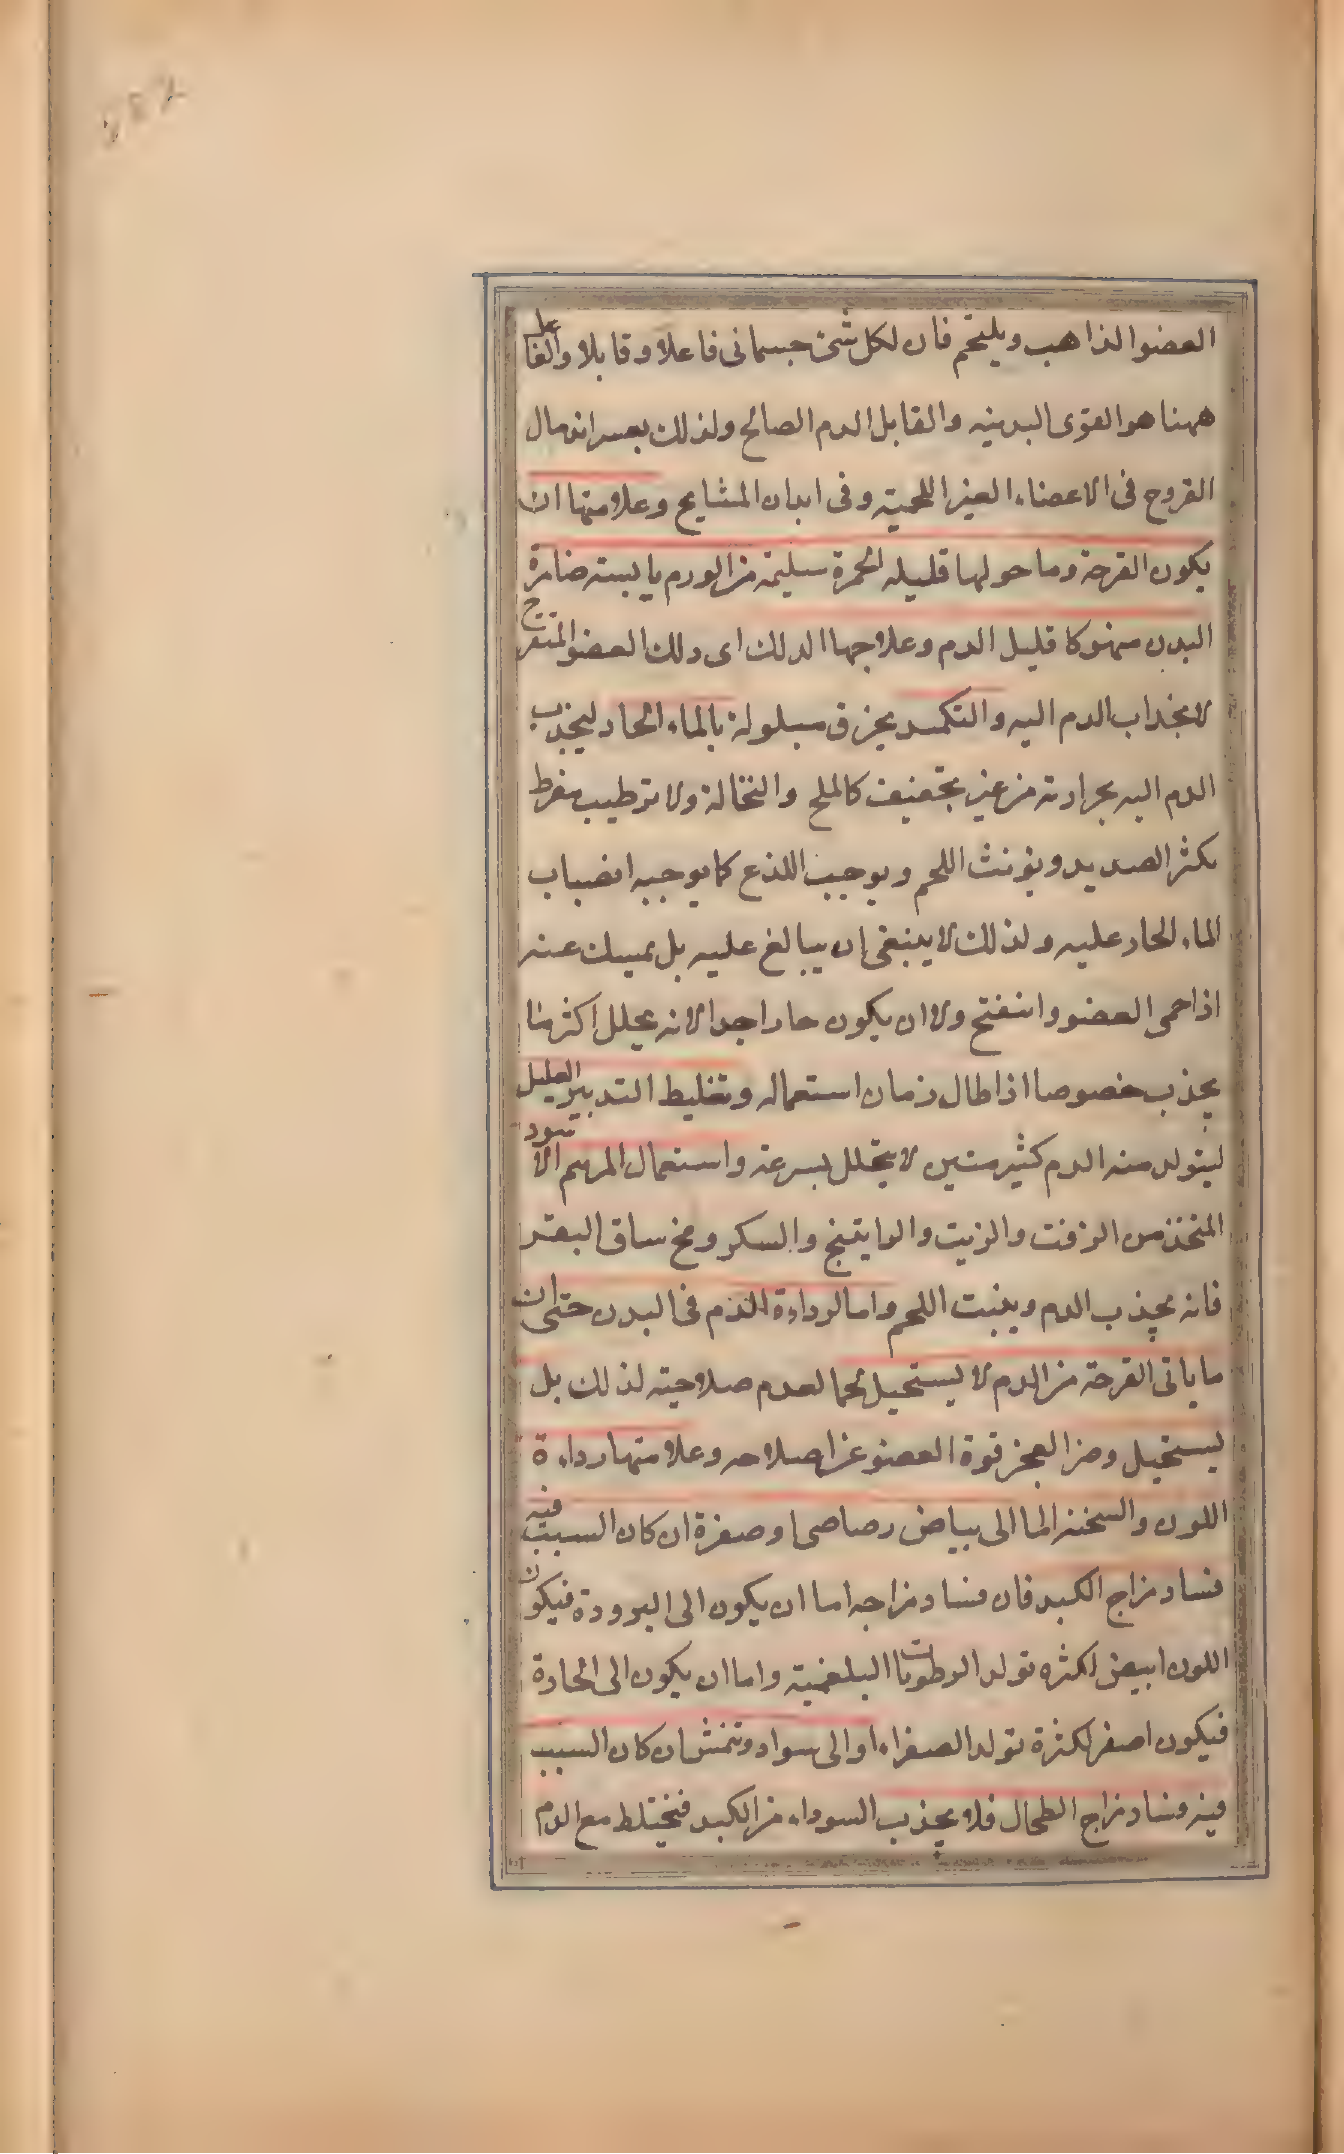 العضو الذاهب ويلتحم فان لكل شئ جسمانى فاعلا وقابلا والفاعل
ههنا هو القوى البدنية والقابل الدم الصالح ولذلك يعسر اندمال
القروح فى الاعضاء الغير اللحمية وفى ابدان المشايخ وعلامتها ان
يكون القرحة وما حولها قليله الحمرة سليمة من الورم يابسته ضامرة
البدن منهوكا قليل الدم وعلاجها الدلك اى دلك العضو المتقرح
لانجذاب الدم اليه والتكميد بخرق مبلولة بالماء الحار ليجذب
الدم اليه بحرارته من غير تجفيف كالملح والنخالة ولا ترطيب مفرط
يكثر الصديد ويونث اللحم ويوجب اللذع كما يوجبه انصباب
الماء الحار عليه ولذلك لا ينبغى ان يبالغ عليه بل يمسك عنه
اذا حمى العضو وانتفتح ولا ان يكون حارا جدا لانه يحلل اكثر منا
يجذب خصوصا اذا طال زمان استعماله وتغليط التدبير العليل
ليتولد منه الدم كثير متين لا يتحلل بسرعة واستعمال المرهم الاسود
المتخذ من الزفت والزيت والراتينج والسكر ومخ ساق البقر
فانه يجذب الدم وينبت اللحم واما لرداءة الدم فى البدن حتى ان
ما ياتى القرحة من الدم لا يستحيل لحما لعدم صلاحيته لذلك بل
يستحيل ومن العجز قوة العضو عن اصلاحه وعلامتها رداءة
اللون والسحنة اما الى بياض رصاصى او صفرة ان كان السبب فيه
فساد مزاج الكبد فان فساد مزاجه اما ان يكون الى البرودة فيكون
اللون ابيض لكثره تولد الرطوبات البلغمية واما ان يكون الى الحارة
فيكون اصفر لكثرة تولد الصفراء او الى سواد وتنمش ان كان السبب
فيه فساد مزاج الطحال فلا يجذب السوداء من الكبد فيختلط مع الدم